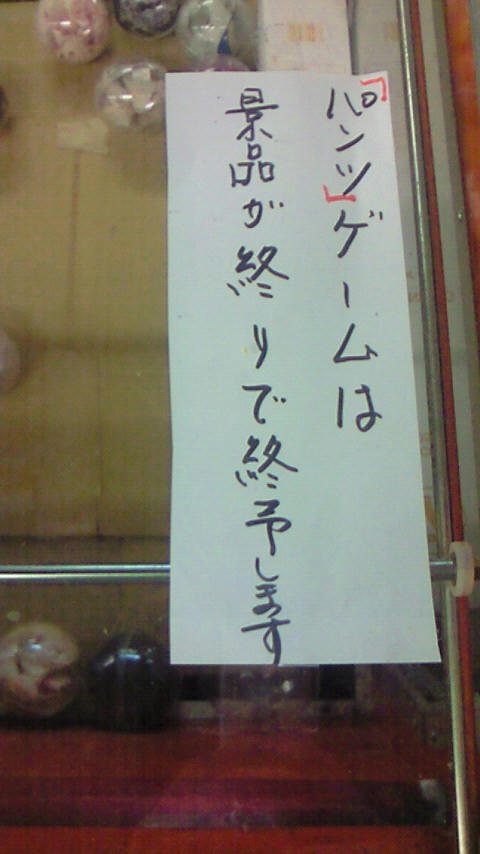 「パンツ」ゲームは
景品が終りで終予します